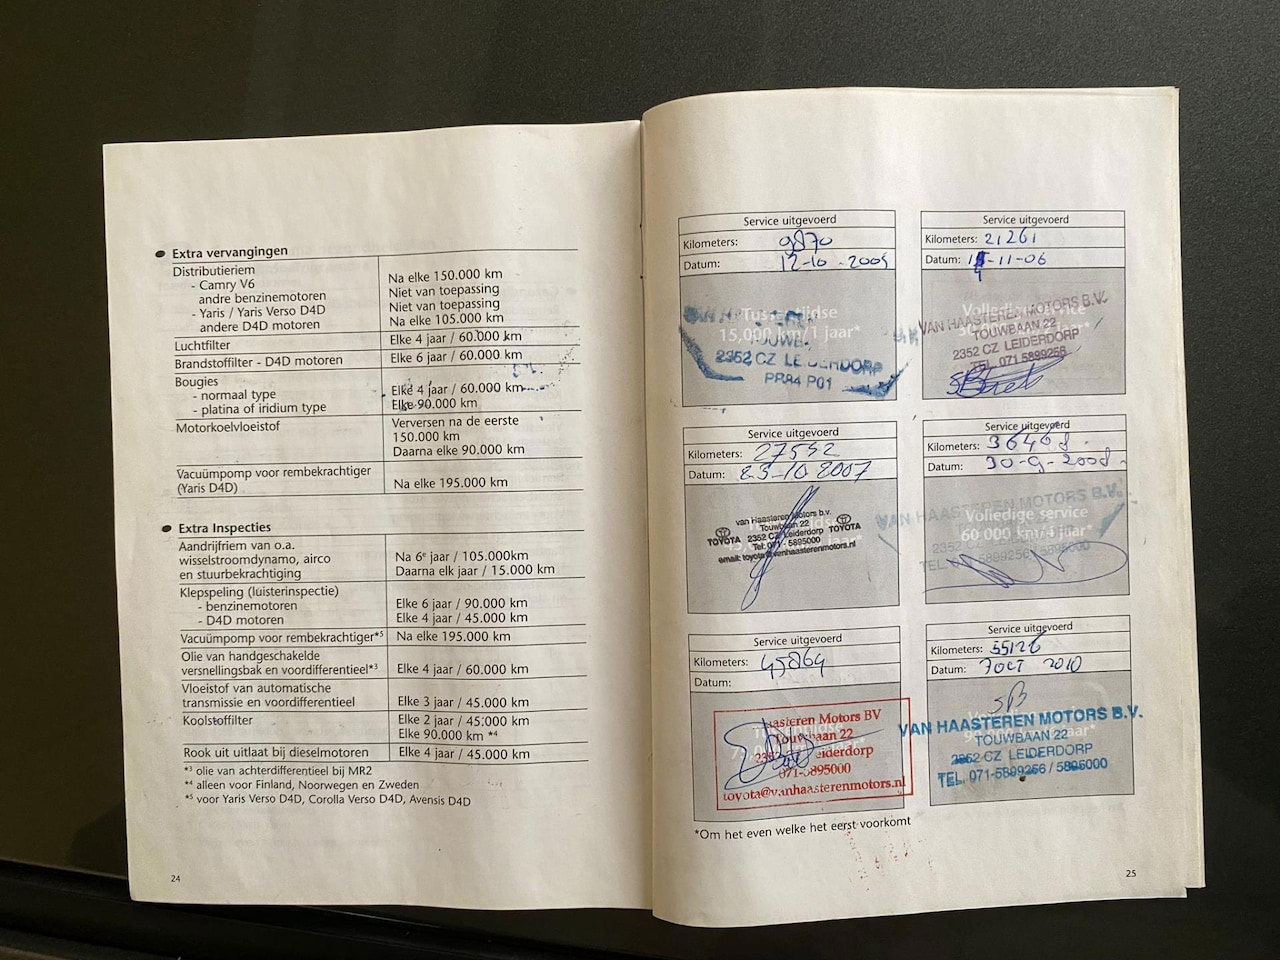 Extra vervangingen
Distributieriem
- Camry V6 Na elke 150.000 km
andere benzinemotoren Niet van toepassing
- Yaris / Yaris Verso D4D Niet van toepassing
andere D4D motoren Na elke 105.000 km
Luchtfilter Elke 4 jaar / 60.000 km
Brandstoffilter - D4D motoren Elke 6 jaar / 60.000 km
Bougies
- normaal type Elke 4 jaar / 60.000 km
- platina of iridium type Elke 90.000 km
Motorkoelvloeistof Verversen na de eerste
150.000 km
Daarna elke 90.000 km
Vacuümpomp voor rembekrachtiger
(Yaris D4D) Na elke 195.000 km
Extra Inspecties
Aandrijfriem van o.a.
wisselstroomdynamo, airco Na 6e jaar / 105.000km
en stuurbekrachtiging Daarna elk jaar / 15.000 km
Klepspeling (luisterinspectie)
- benzinemotoren Elke 6 jaar / 90.000 km
- D4D motoren Elke 4 jaar / 45.000 km
Vacuümpomp voor rembekrachtiger*5 Na elke 195.000 km
Olie van handgeschakelde
versnellingsbak en voordifferentieel*3 Elke 4 jaar / 60.000 km
Vloeistof van automatische
transmissie en voordifferentieel Elke 3 jaar / 45.000 km
Koolstoffilter Elke 2 jaar / 45.000 km
Elke 90.000 km *4
Rook uit uitlaat bij dieselmotoren Elke 4 jaar / 45.000 km
*3 olie van achterdifferentieel bij MR2
*4 alleen voor Finland, Noorwegen en Zweden
*5 voor Yaris Verso D4D, Corolla Verso D4D, Avensis D4D
24
Service uitgevoerd
Kilometers: 9870
Datum: 12-10-2005
15,000 km/1 jaar*
2352 CZ LEIDERDORP
PR84 P01
Service uitgevoerd
Kilometers: 21261
Datum: -11-06
Volledige service
VAN HAASTEREN MOTORS B.V.
TOUWBAAN 22
2352 CZ LEIDERDORP
TEL. 071 5899256
Service uitgevoerd
Kilometers: 27552
Datum: 23-10 2007
van Haasteren Motors b.v.
Touwbaan 22
TOYOTA 2352 CZ Leiderdorp TOYOTA
Tel: 071 - 5895000
email: toyota@vanhaasterenmotors.nl
Service uitgevoerd
Kilometers: 36468
Datum: 30-9-2008
VAN HAASTEREN MOTORS B.V.
Volledige service
60 000 km/4 jaar*
TEL. 5899256 / 5895000
Service uitgevoerd
Kilometers: 45864
Datum:
Haasteren Motors BV
Touwbaan 22
Leiderdorp
071-5895000
toyota@vanhaasterenmotors.nl
Service uitgevoerd
Kilometers: 55126
Datum: 7 OCT 2010
SB
VAN HAASTEREN MOTORS B.V.
TOUWBAAN 22
2352 CZ LEIDERDORP
TEL. 071-5899256 / 5895000
*Om het even welke het eerst voorkomt
25